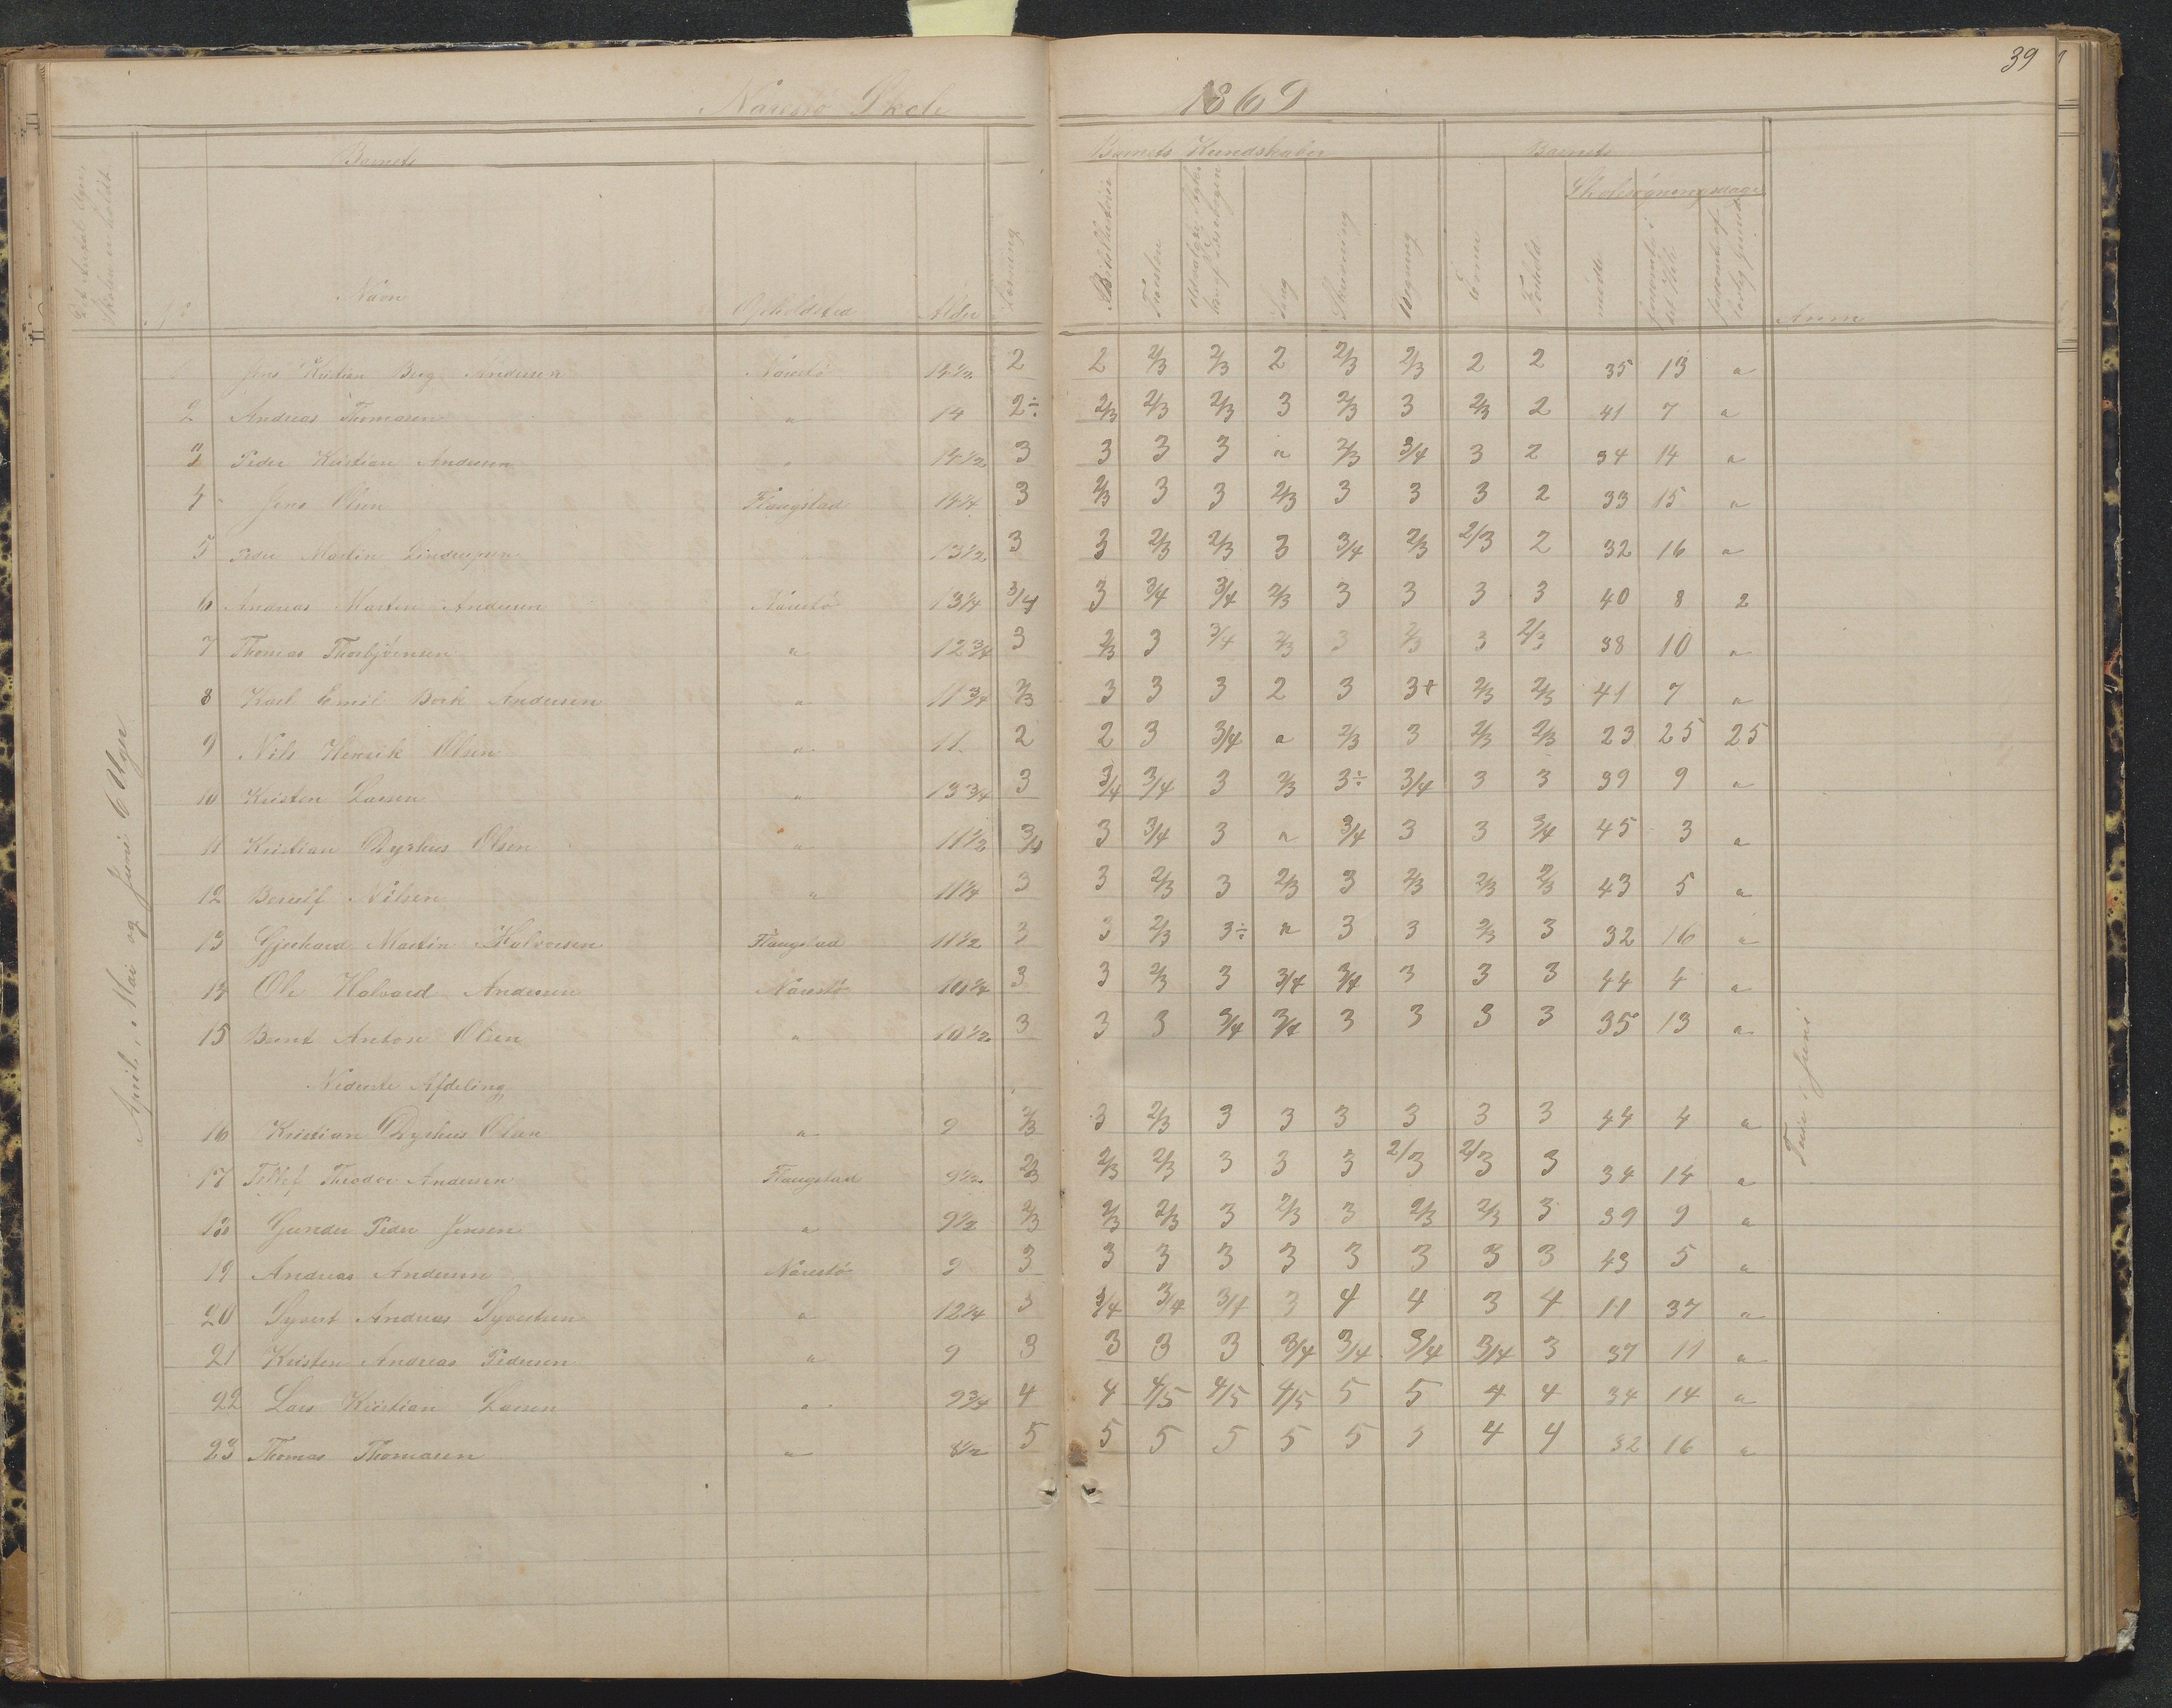 39
Narestø Skole 1869
Det Antal Uger Skolen er holdt
Barnets
Barnets Kundskaber
Barnets
Skolesøgningsdage
No
Navn
Opholdsted
Alder
Læsning
Bibelhistorie
Troslære
Sang
Skrivning
Regning
Evner
Forhold
mødte
forsømte i det Hele
forsømt af lovlig Grund
Anm
April, Mai og Juni 6 Uger
1 Jens Kristian Berg Andersen Narestø 14 1/2 2 2 2/3 2/3 2 2/3 2/3 2 2 35 13 "
2 Andreas Thomasen " 14 2÷ 2/3 2/3 2/3 3 2/3 3 2/3 2 41 7 "
3 Peder Kristian Andersen " 14 1/2 3 3 3 3 " 2/3 3/4 3 2 34 14 "
4 Jens Olsen Flaugstad 14 1/4 3 2/3 3 3 2/3 3 3 3 2 33 15 "
5 Peder Martin 13 1/2 3 3 2/3 2/3 3 3/4 2/3 2/3 2 32 16 "
6 Andreas Martin Andersen Narestø 13 1/4 3/4 3 3/4 3/4 2/3 3 3 3 3 40 8 2
7 Thomas Thorbjörnsen " 12 3/4 3 2/3 3 3/4 2/3 3 2/3 3 2/3 38 10 "
8 Karl Emil Bork Andersen " 11 3/4 2/3 3 3 3 2 3 3+ 2/3 2/3 41 7 "
9 Nils Henrik Olsen " 11 2 2 3 3/4 " 2/3 3 2/3 2/3 23 25 25
10 Kristen Larsen " 13 3/4 3 3/4 3/4 3 2/3 3÷ 3/4 3 3 39 9 "
11 Kristian Dyrhus Olsen " 11 1/2 3/4 3 3/4 3 " 3/4 3 3 3/4 45 3 "
12 Berulf Nilsen " 11 1/4 3 3 2/3 3 2/3 3 2/3 2/3 2/3 43 5 "
13 Gjerhard Martin Halvorsen Flaugstad 11 1/2 3 3 2/3 3÷ " 3 3 2/3 3 32 16 "
14 Ole Halvard Andersen Narestø 10 1/4 3 3 2/3 3 3/4 3/4 3 3 3 44 4 "
15 Bernt Anton Olsen " 10 1/2 3 3 3 3/4 3/4 3 3 3 3 35 13 "
Nederste Afdeling
16 Kristian Dyrhus Olsen " 9 2/3 3 2/3 3 3 3 3 3 3 44 4 "
17 Tellef Theodor Andersen Flaugstad 9 1/2 2/3 2/3 2/3 3 3 3 2/3 2/3 3 34 14 "
18 Gunder Peder Jensen " 9 1/2 2/3 2/3 2/3 3 2/3 3 2/3 2/3 3 39 9 "
19 Andreas Andersen Narestø 9 3 3 3 3 3 3 3 3 3 43 5 "
20 Syvert Andreas Syvertsen " 12 1/4 3 3/4 3/4 3/4 3 4 4 3 4 11 37 "
21 Kristen Andreas Pedersen " 9 3 3 3 3 3/4 3/4 3/4 3/4 3 37 11 "
22 Lars Kristian Larsen " 9 3/4 4 4 4/5 4/5 4/5 5 5 4 4 34 14 "
23 Thomas Thomasen " 8 1/2 5 5 5 5 5 5 5 4 4 32 16 "